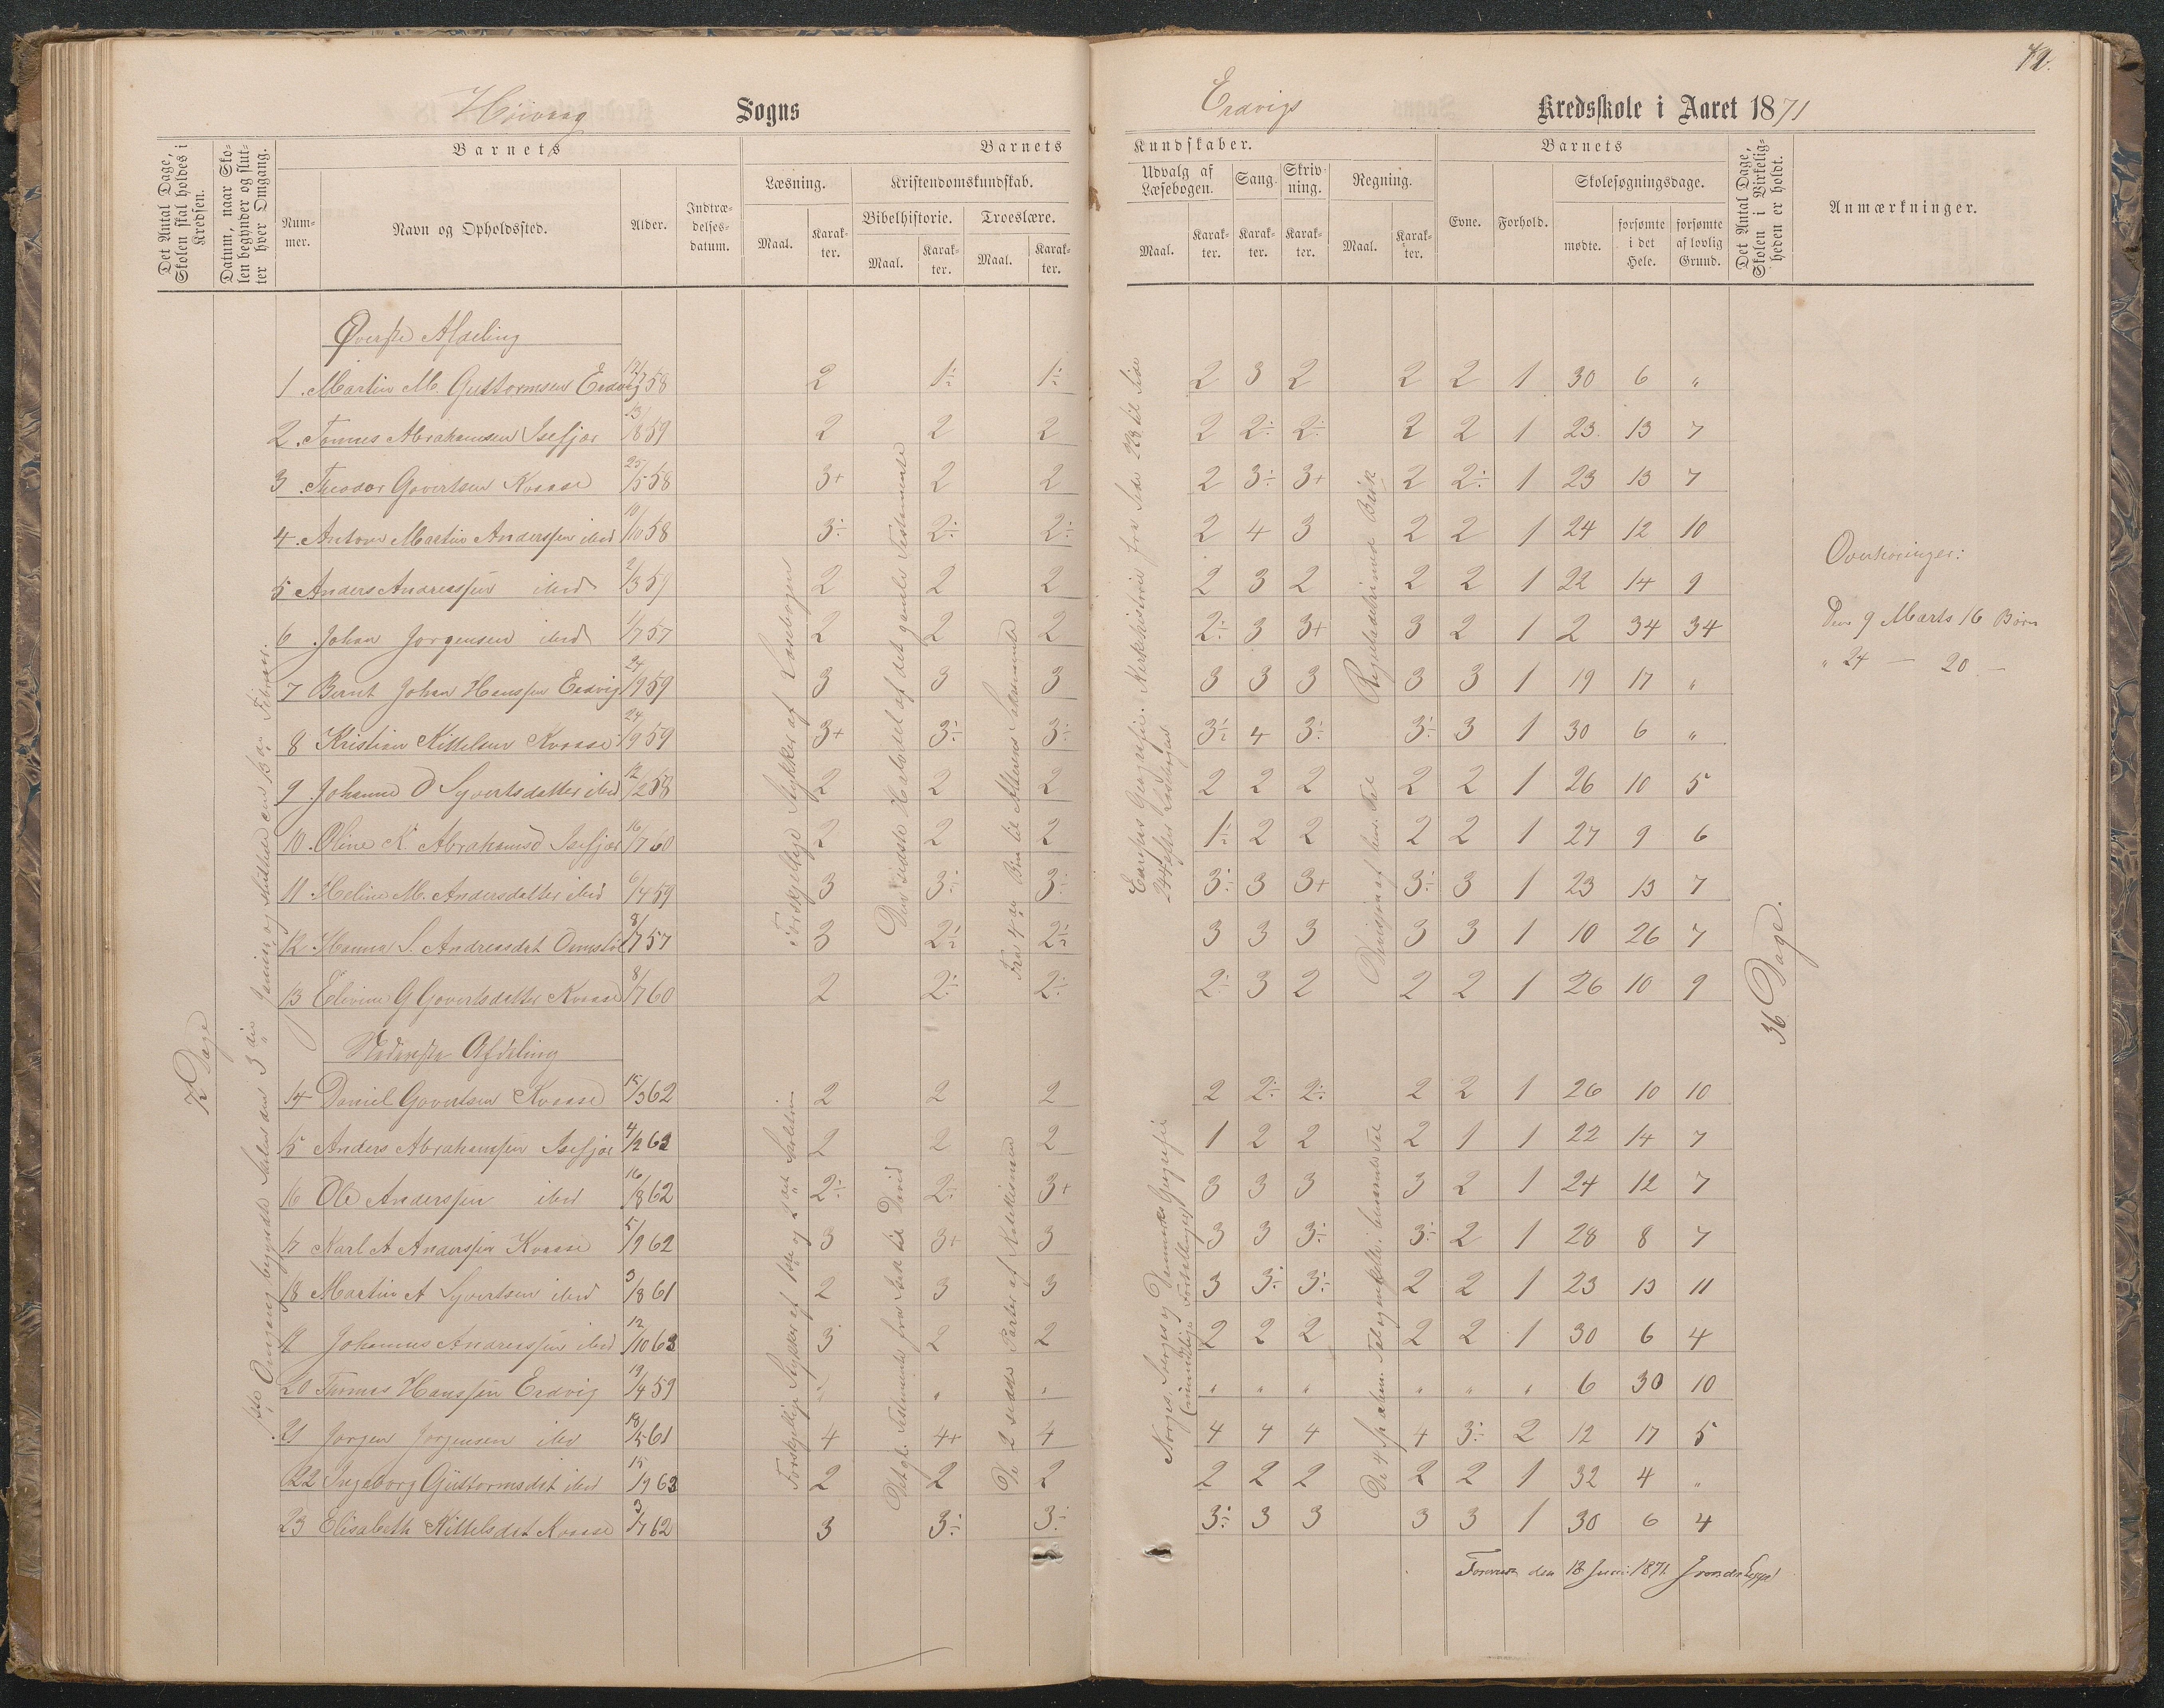 72.
Høivaag Sogns
Eadvigs Kredsskole i Aaret 1871
Det Antal Dage, Skolen skal holdes i Kredsen.
Datum, naar Skolen begynder og slutter hver Omgang.
Barnets
Nummer.
Navn og Opholdssted.
Alder.
Indtrædelsesdatum.
Barnets Kundskaber.
Læsning.
Maal.
Karakter.
Kristendomskundskab.
Bibelhistorie.
Maal.
Karakter.
Troeslære.
Maal.
Karakter.
Udvalg af Læsebogen.
Maal.
Karakter.
Sang.
Karakter.
Skrivning.
Karakter.
Regning.
Maal.
Karakter.
Barnets
Evne.
Forhold.
Skolesøgningsdage.
mødte.
forsømte i det Hele.
forsømte af lovlig Grund.
Det Antal Dage, Skolen i Virkeligheden er holdt.
Anmærkninger.
Øverste Afdeling
1 Martin M. Guttormsen Eadvig 12/7 58 2 1÷ 1÷ 2 3 2 2 2 1 30 6 "
2 Tomas Abrahamsen Isefjær 13/8 59 2 2 2 2 2÷ 2÷ 2 2 1 23 13 7
3 Theodor Govertsen Kvaase 25/5 58 3+ 2 2 2 3÷ 3+ 2 2÷ 1 23 13 7
4 Anton Martin Anderssen ibid 10/10 58 3÷ 2÷ 2÷ 2 4 3 2 2 1 24 12 10
5 Anders Andreassen ibid 2/3 59 2 2 2 2 3 2 2 2 1 22 14 9
6 Johan Jørgensen ibid 1/7 57 2 2 2 2÷ 3 3+ 3 2 1 2 34 34
7 Bernt Johan Hanssen Eadvig 24/9 59 3 3 3 3 3 3 3 3 1 19 17 "
8 Kristian Kittelsen Kvaase 24/9 59 3+ 3÷ 3÷ 3÷ 4 3÷ 3÷ 3 1 30 6 "
9 Johanne O Syvertsdatter ibid 12/2 58 2 2 2 2 2 2 2 2 1 26 10 5
10 Oline K. Abrahamsd Isefjær 16/7 60 2 2 2 1÷ 2 2 2 2 1 27 9 6
11 Heline M. Andersdatter ibid 6/4 59 3 3÷ 3÷ 3÷ 3 3+ 3÷ 3 1 23 13 7
12 Hanna S. Andreasdat 8/7 57 3 2÷ 2÷ 3 3 3 3 3 1 10 26 7
13 G Govertsdatter Kvaase 8/7 60 2 2÷ 2÷ 2÷ 3 2 2 2 1 26 10 9
Nederste Afdeling
14 Daniel Govertsen Kvaase 15/3 62 2 2 2 2 2÷ 2÷ 2 2 1 26 10 10
15 Anders Abrahamsen Isefjær 4/2 62 2 2 2 1 2 2 2 1 1 22 14 7
16 Ole Anderssen ibid 16/8 62 2÷ 2÷ 3+ 3 3 3 3 2 1 24 12 7
17 Karl A Anderssen Kvaase 5/9 62 3 3+ 3 3 3 3÷ 3÷ 2 1 28 8 7
18 Martin A Syvertsen ibid 3/8 61 2 3 3 3 3÷ 3÷ 2 2 1 23 13 11
19 Johannes Andreassen ibid 12/10 63 3 2 2 2 2 2 2 2 1 30 6 4
20 Thomas Hanssen Eadvig 19/4 59 " " " " " " " " " 6 30 10
21 Jørgen Jørgensen ibid 18/5 61 4 4+ 4 4 4 4 4 3÷ 2 12 17 5
22 Ingeborg Guttormsdat ibid 15/9 63 2 2 2 2 2 2 2 2 1 32 4 "
23 Elisabeth Kittelsdat Kvaase 3/7 62 3 3÷ 3÷ 3÷ 3 3 3 3 1 30 6 4
Forskjellige Stykker af Læsebogen
Den sidste Halvdel af det gamle Testamente
Fra 4de Bøn til Alterens Sakramente
Europas Geografi. Kirkehistorie fra Side 223 til Side
244 efter Læsebogen
Forskjellige Stykker af 1ste og 2det
Det gl. Testamente fra til David
De 2 sidste Parter af Katekismen
Norges, Sverges og Danmarks Geografi
(mundtlige Fortællinger)
36 Dage.
Overhøringer:
Den 9 Marts 16 Børn
" 24 — 20 —
den 18 Juni 1871